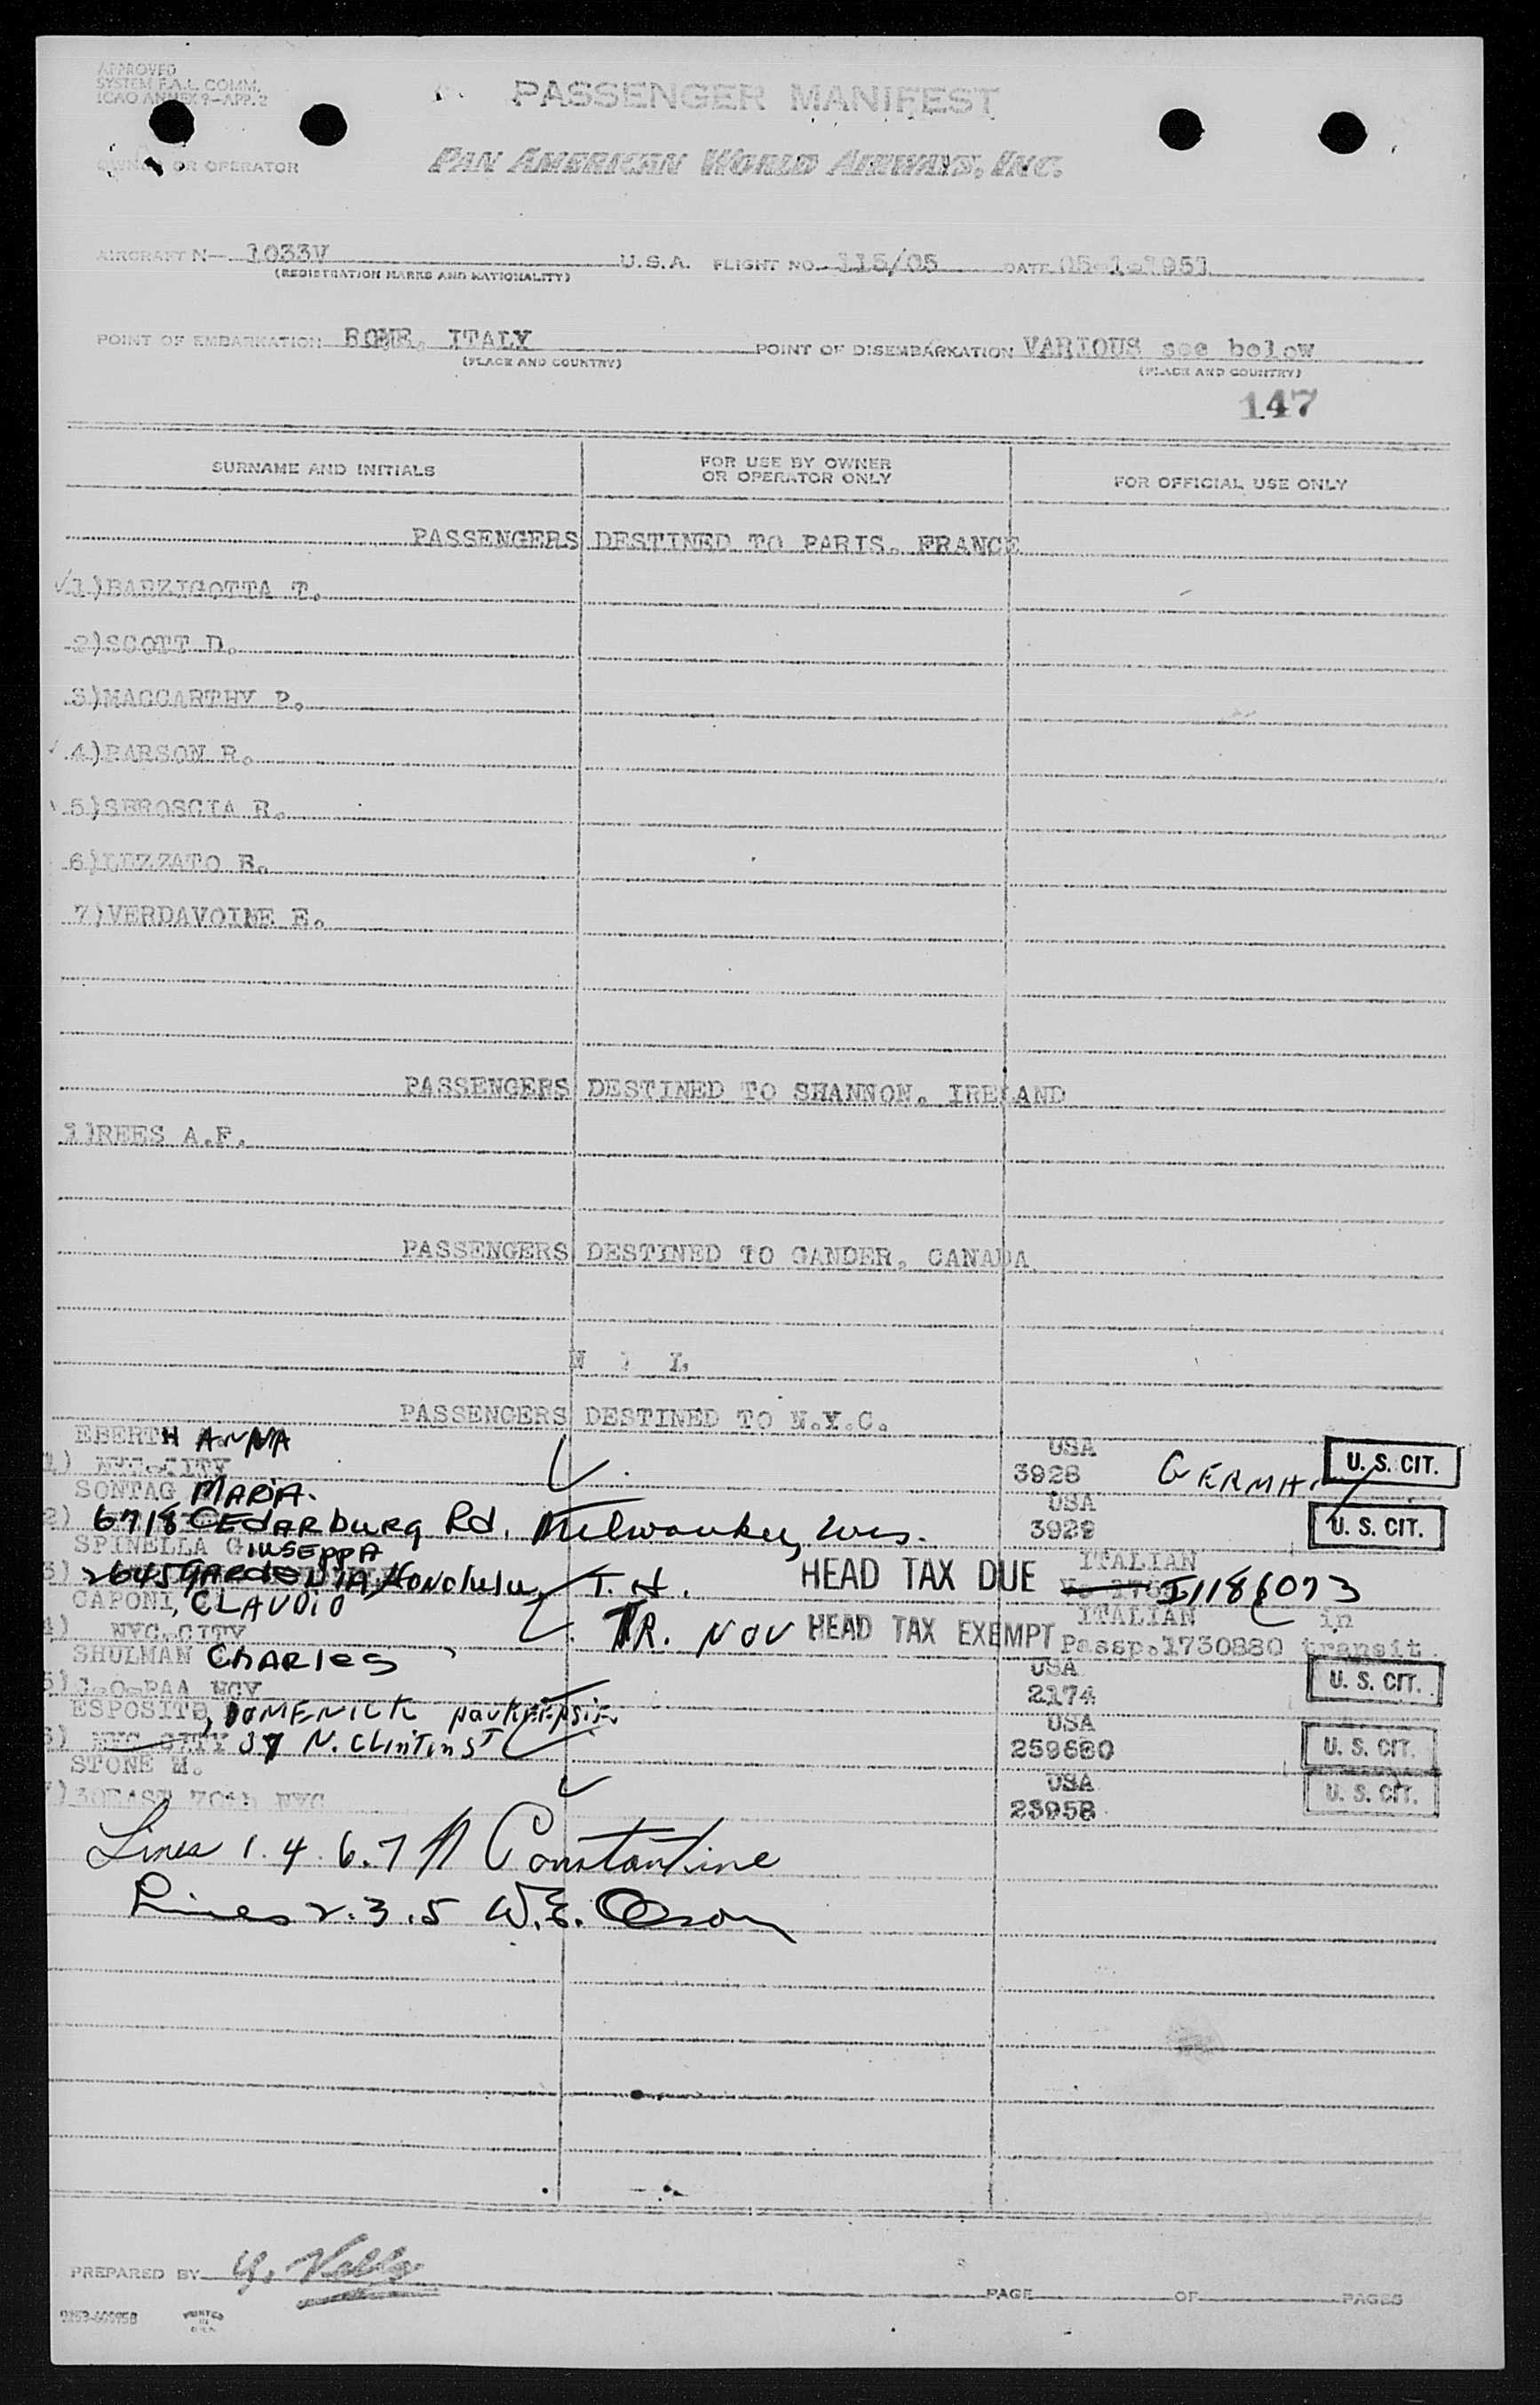 APPROVED
SYSTEM F.A.L. COMM.
ICAO ANNEX 9-APP. 2
PASSENGER MANIFEST
OWNER OR OPERATOR
PAN AMERICAN WORLD AIRWAYS, INC.
AIRCRAFT N- 1033V U.S.A. FLIGHT NO. 115/05 DATE 05-1-1951
(REGISTRATION MARKS AND NATIONALITY)
POINT OF EMBARKATION ROME, ITALY POINT OF DISEMBARKATION VARIOUS see below
(PLACE AND COUNTRY) (PLACE AND COUNTRY)
147
SURNAME AND INITIALS FOR USE BY OWNER OR OPERATOR ONLY FOR OFFICIAL USE ONLY
PASSENGERS DESTINED TO PARIS. FRANCE
1)BARZIGOTTA T.
2)SCOTT D.
3)MACCARTHY P.
4)PARSON R.
5)SBROSCIA R.
6)LUZZATO B.
7)VERDAVOINE E.
PASSENGERS DESTINED TO SHANNON. IRELAND
1)REES A.F.
PASSENGERS DESTINED TO GANDER. CANADA
N I L
PASSENGERS DESTINED TO N.Y.C.
EBERTH ANNA USA
1) CITY 3928 GERMA U. S. CIT.
SONTAG MARIA. USA
2) 6718 CEdARburg Rd. Milwaukee, Wis. 3929 U. S. CIT.
SPINELLA GIUSEPPA ITALIAN
3) 2645 GARdENIA, Honolulu T. H. HEAD TAX DUE I1186073
CAPONI, CLAUDIO ITALIAN in
4) NYC. CITY TR. NOV HEAD TAX EXEMPT Passp.1730880 transit
SHULMAN CHARlES USA
5) C-O-PAA NCY 2174 U. S. CIT.
ESPOSITO, DOMENICK POUKEEPSIE USA
6) NYC CITY 37 N. CLINTINST 259680 U. S. CIT.
STONE M. USA
7) 30EAST 70th NYC 23958 U. S. CIT.
Lines 1. 4. 6. 7 Constantine
Lines 2. 3. 5 W.E. Olson
PREPARED BY PAGE OF PAGES
PRINTED
IN
U.S.A.